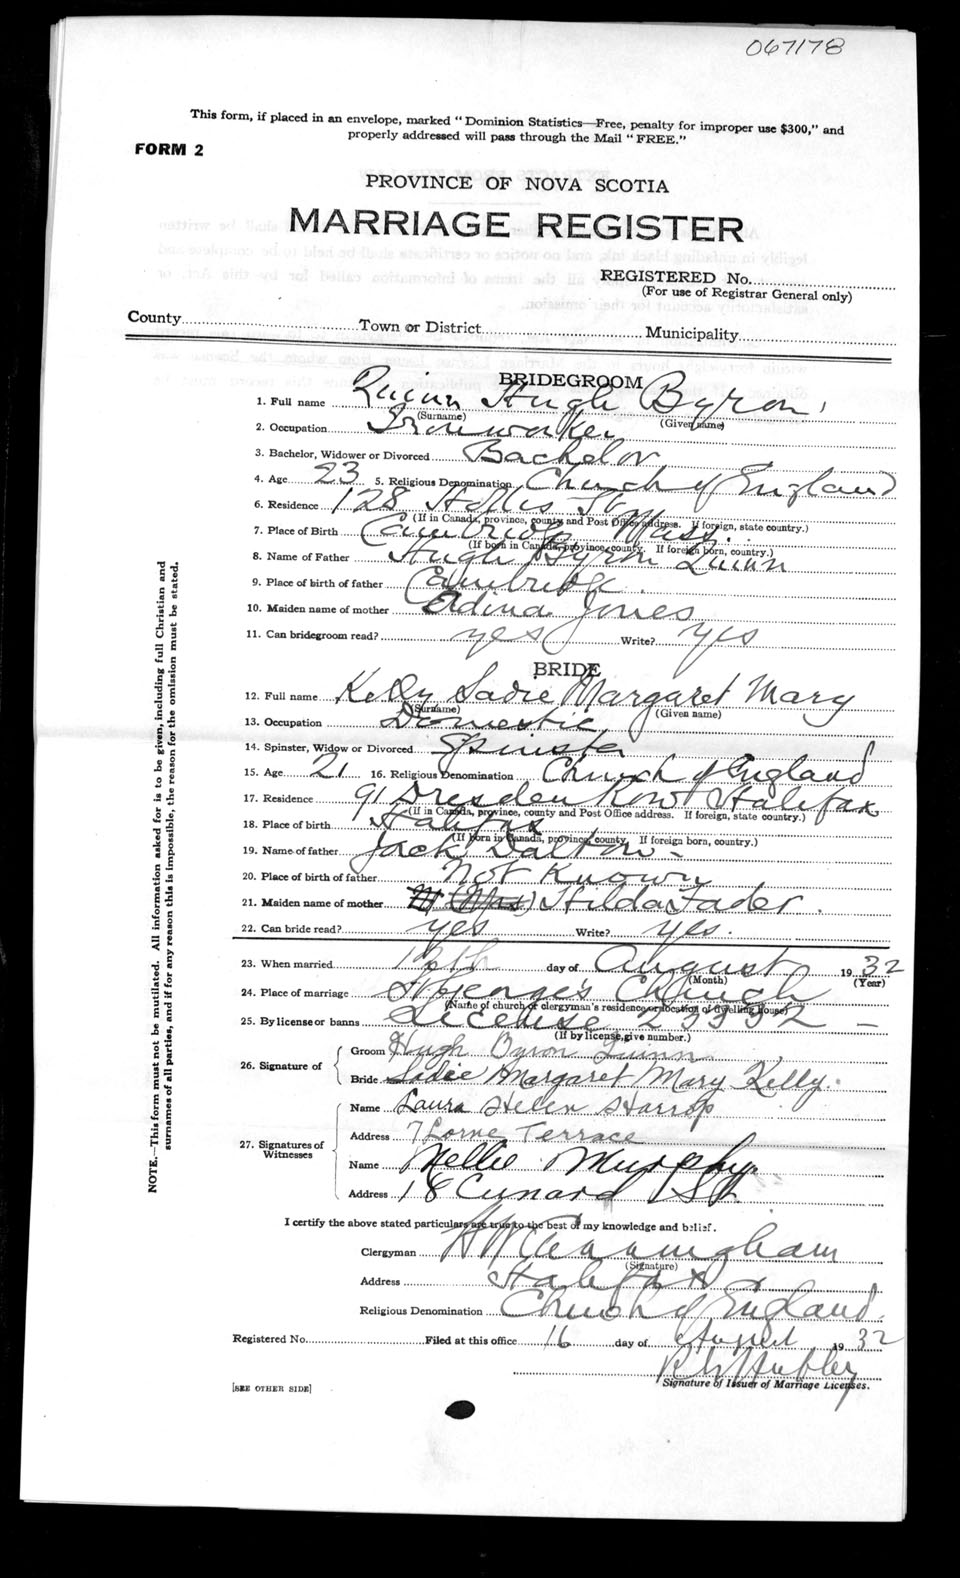 067178
This form, if placed in an envelope, marked "Dominion Statistics—Free, penalty for improper use $300," and
properly addressed will pass through the Mail "FREE."
FORM 2
PROVINCE OF NOVA SCOTIA
MARRIAGE REGISTER
REGISTERED No.
(For use of Registrar General only)
County Town or District Municipality
BRIDEGROOM
1. Full name Quinn Hugh Byron
(Surname) (Given name)
2. Occupation Ironworker
3. Bachelor, Widower or Divorced Bachelor
4. Age 23 5. Religious Denomination Church of England
6. Residence 128 Hollis St
(If in Canada, province, county and Post Office address. If foreign, state country.)
7. Place of Birth Cambridge Mass.
(If born in Canada, province, county. If foreign born, country.)
8. Name of Father Hugh Byron Quinn
9. Place of birth of father Cambridge.
10. Maiden name of mother Edina Jones
11. Can bridegroom read? yes Write? yes
BRIDE
12. Full name Kelly Sadie Margaret Mary
(Surname) (Given name)
13. Occupation Domestic
14. Spinster, Widow or Divorced Spinster
15. Age 21 16. Religious Denomination Church of England
17. Residence 91 Dresden Row Halifax
(If in Canada, province, county and Post Office address. If foreign, state country.)
18. Place of birth Halifax
(If born in Canada, province, county. If foreign born, country.)
19. Name of father Jack Dalton -
20. Place of birth of father not known
21. Maiden name of mother (Mrs) Hilda Fader.
22. Can bride read? yes Write? yes.
23. When married day of August 1932
(Month) (Year)
24. Place of marriage St George's Church
(Name of church or clergyman's residence or location of dwelling house)
25. By license or banns License -
(If by license, give number.)
26. Signature of
Groom Hugh Byron Quinn
Bride Sadie Margaret Mary Kelly.
27. Signatures of Witnesses
Name Laura Helen Harrop
Address 7 Lorne Terrace
Name Nellie Murphy
Address 18 Cunard St
I certify the above stated particulars are true to the best of my knowledge and belief.
Clergyman H W Cunningham
(Signature)
Address Halifax
Religious Denomination Church of England
Registered No. Filed at this office 16 day of August 1932
Hubley
Signature of Issuer of Marriage Licenses.
[SEE OTHER SIDE]
NOTE.—This form must not be mutilated. All information asked for is to be given, including full Christian and
surnames of all parties, and if for any reason this is impossible, the reason for the omission must be stated.